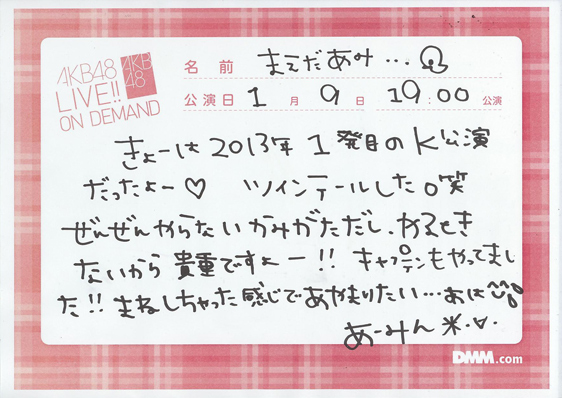 AKB48
LIVE!!
ON DEMAND
AKB
48
名前 まえだあみ…
公演日 1月9日 19:00公演
きょーは2013年1発目のK公演
だったよー♡ ツインテールした○笑
ぜんぜんやらないかみがただし、やるとき
ないから貴重ですよー!! キャプテンもやってまし
た!! まねしちゃった感じであやまりたい…あは
あーみん
DMM.com